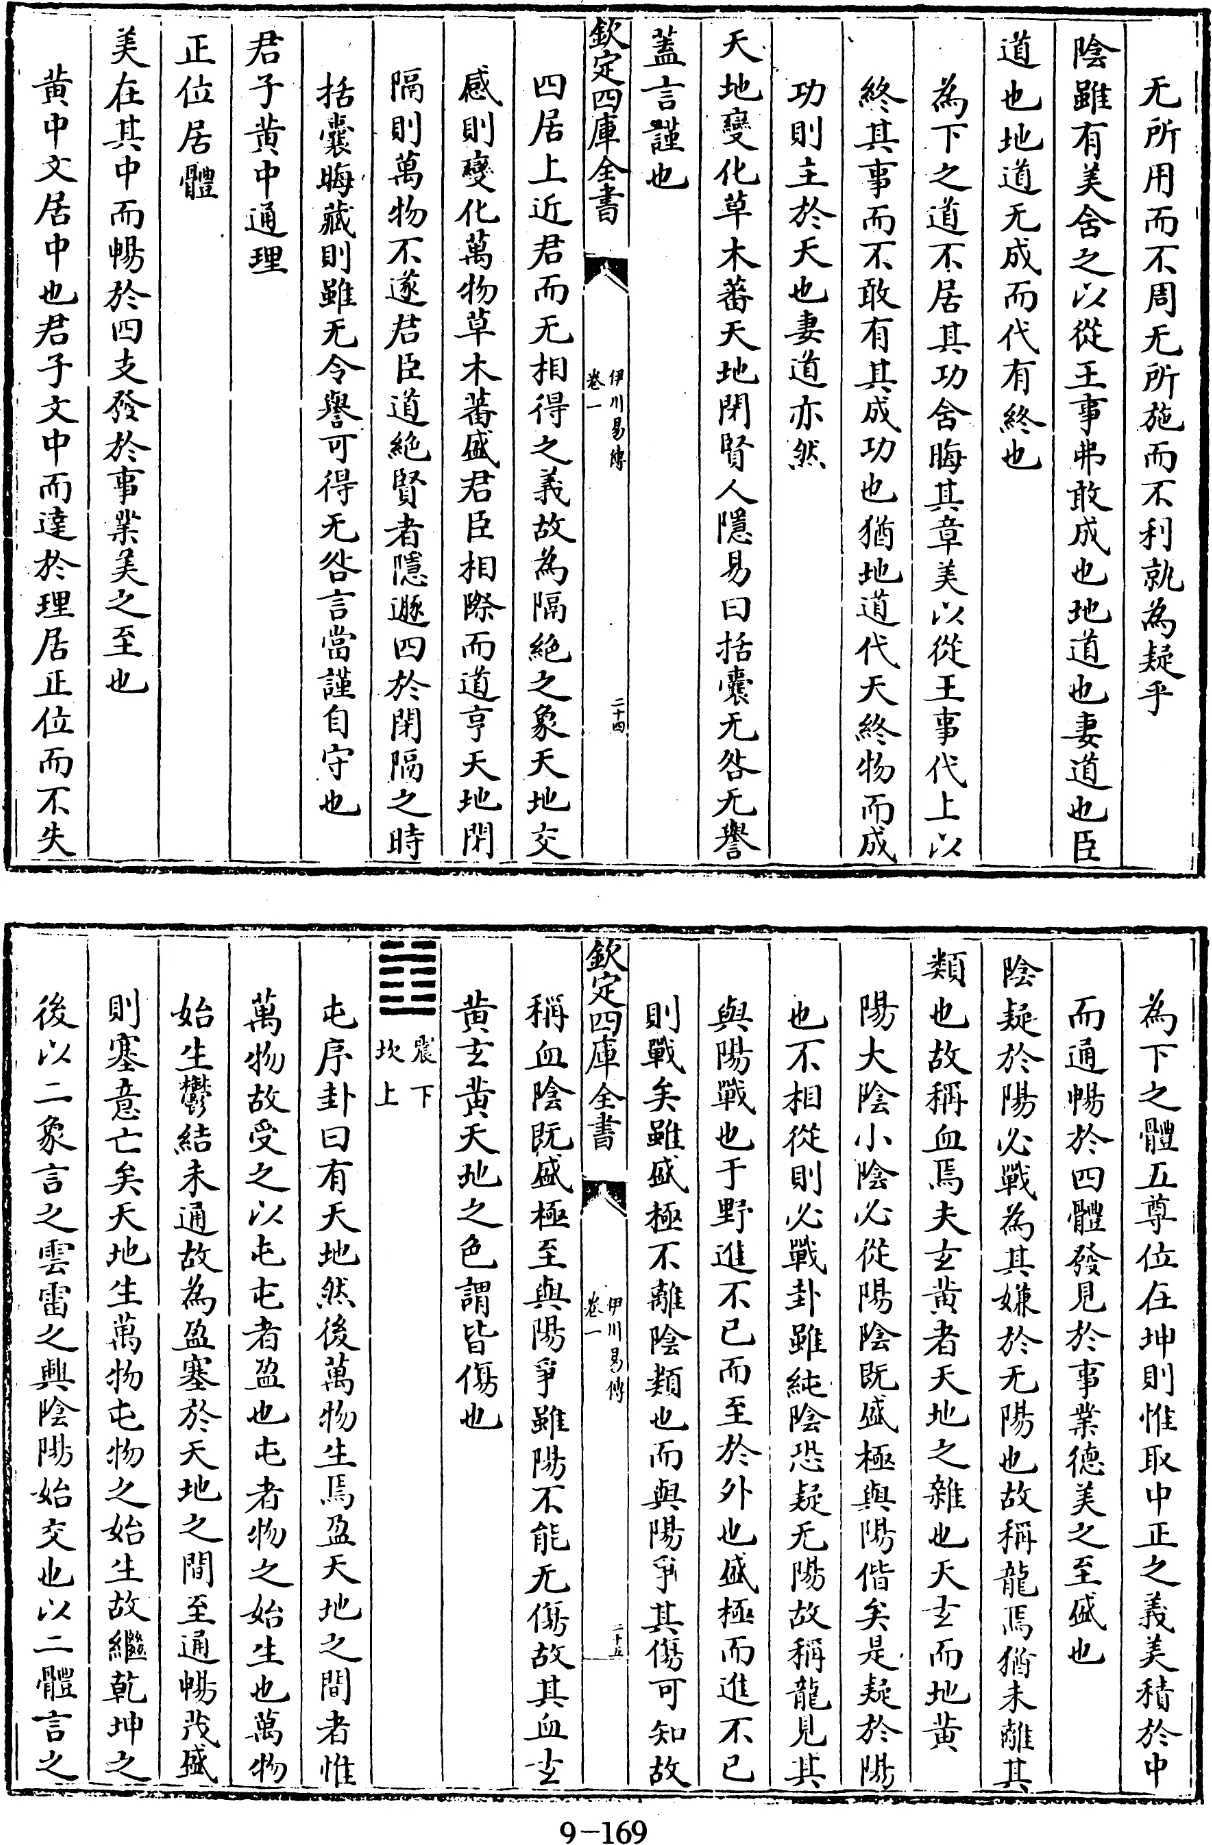 无所用而不周无所施而不利孰為疑乎
陰雖有美含之以從王事弗敢成也地道也妻道也臣
道也地道无成而代有終也
為下之道不居其功含晦其章美以從王事代上以
終其事而不敢有其成功也猶地道代天終物而成
功則主於天也妻道亦然
天地變化草木蕃天地閉賢人隱易曰括囊无咎无譽
蓋言謹也
欽定四庫全書
伊川易傳
卷一
二十四
四居上近君而无相得之義故為隔絶之象天地交
感則變化萬物草木蕃盛君臣相際而道亨天地閉
隔則萬物不遂君臣道絶賢者隱遯四於閉隔之時
括囊晦藏則雖无令譽可得无咎言當謹自守也
君子黄中通理
正位居體
美在其中而暢於四支發於事業美之至也
黄中文居中也君子文中而達於理居正位而不失
為下之體五尊位在坤則惟取中正之義美積於中
而通暢於四體發見於事業德美之至盛也
陰疑於陽必戰為其嫌於无陽也故稱龍焉猶未離其
類也故稱血焉夫玄黄者天地之雜也天玄而地黄
陽大陰小陰必從陽陰既盛極與陽偕矣是疑於陽
也不相從則必戰卦雖純陰恐疑无陽故稱龍見其
與陽戰也于野進不已而至於外也盛極而進不已
則戰矣雖盛極不離陰類也而與陽爭其傷可知故
欽定四庫全書
伊川易傳
卷一
二十五
稱血陰既盛極至與陽爭雖陽不能无傷故其血玄
黄玄黄天地之色謂皆傷也
震下
坎上
屯序卦曰有天地然後萬物生焉盈天地之間者惟
萬物故受之以屯屯者盈也屯者物之始生也萬物
始生鬱結未通故為盈塞於天地之間至通暢茂盛
則塞意亡矣天地生萬物屯物之始生故繼乾坤之
後以二象言之雲雷之興陰陽始交也以二體言之
9-169